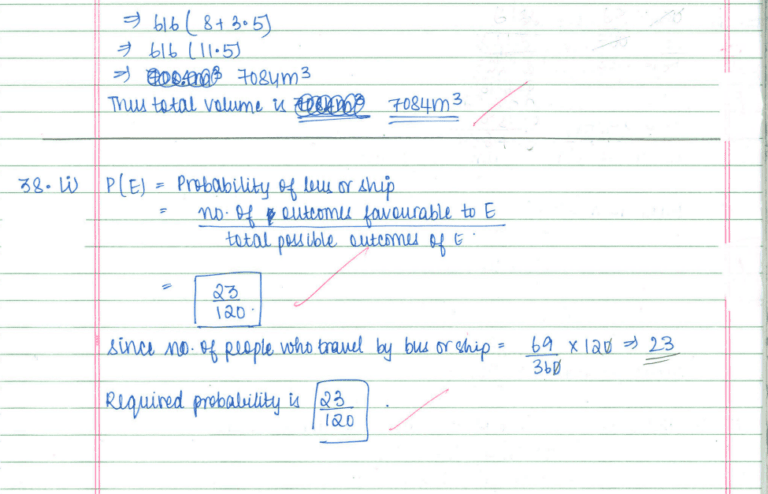 ⇒ 616 ( 8 + 3.5)
⇒ 616 (11.5)
⇒ 7084m³
Thus total volume is 7084m³
38. (i) P(E) = Probability of bus or ship
= no. of outcomes favourable to E
total possible outcomes of E.
= 23
120.
Since no. of people who travel by bus or ship = 69 × 120 ⇒ 23
360
Required probability is 23 .
120